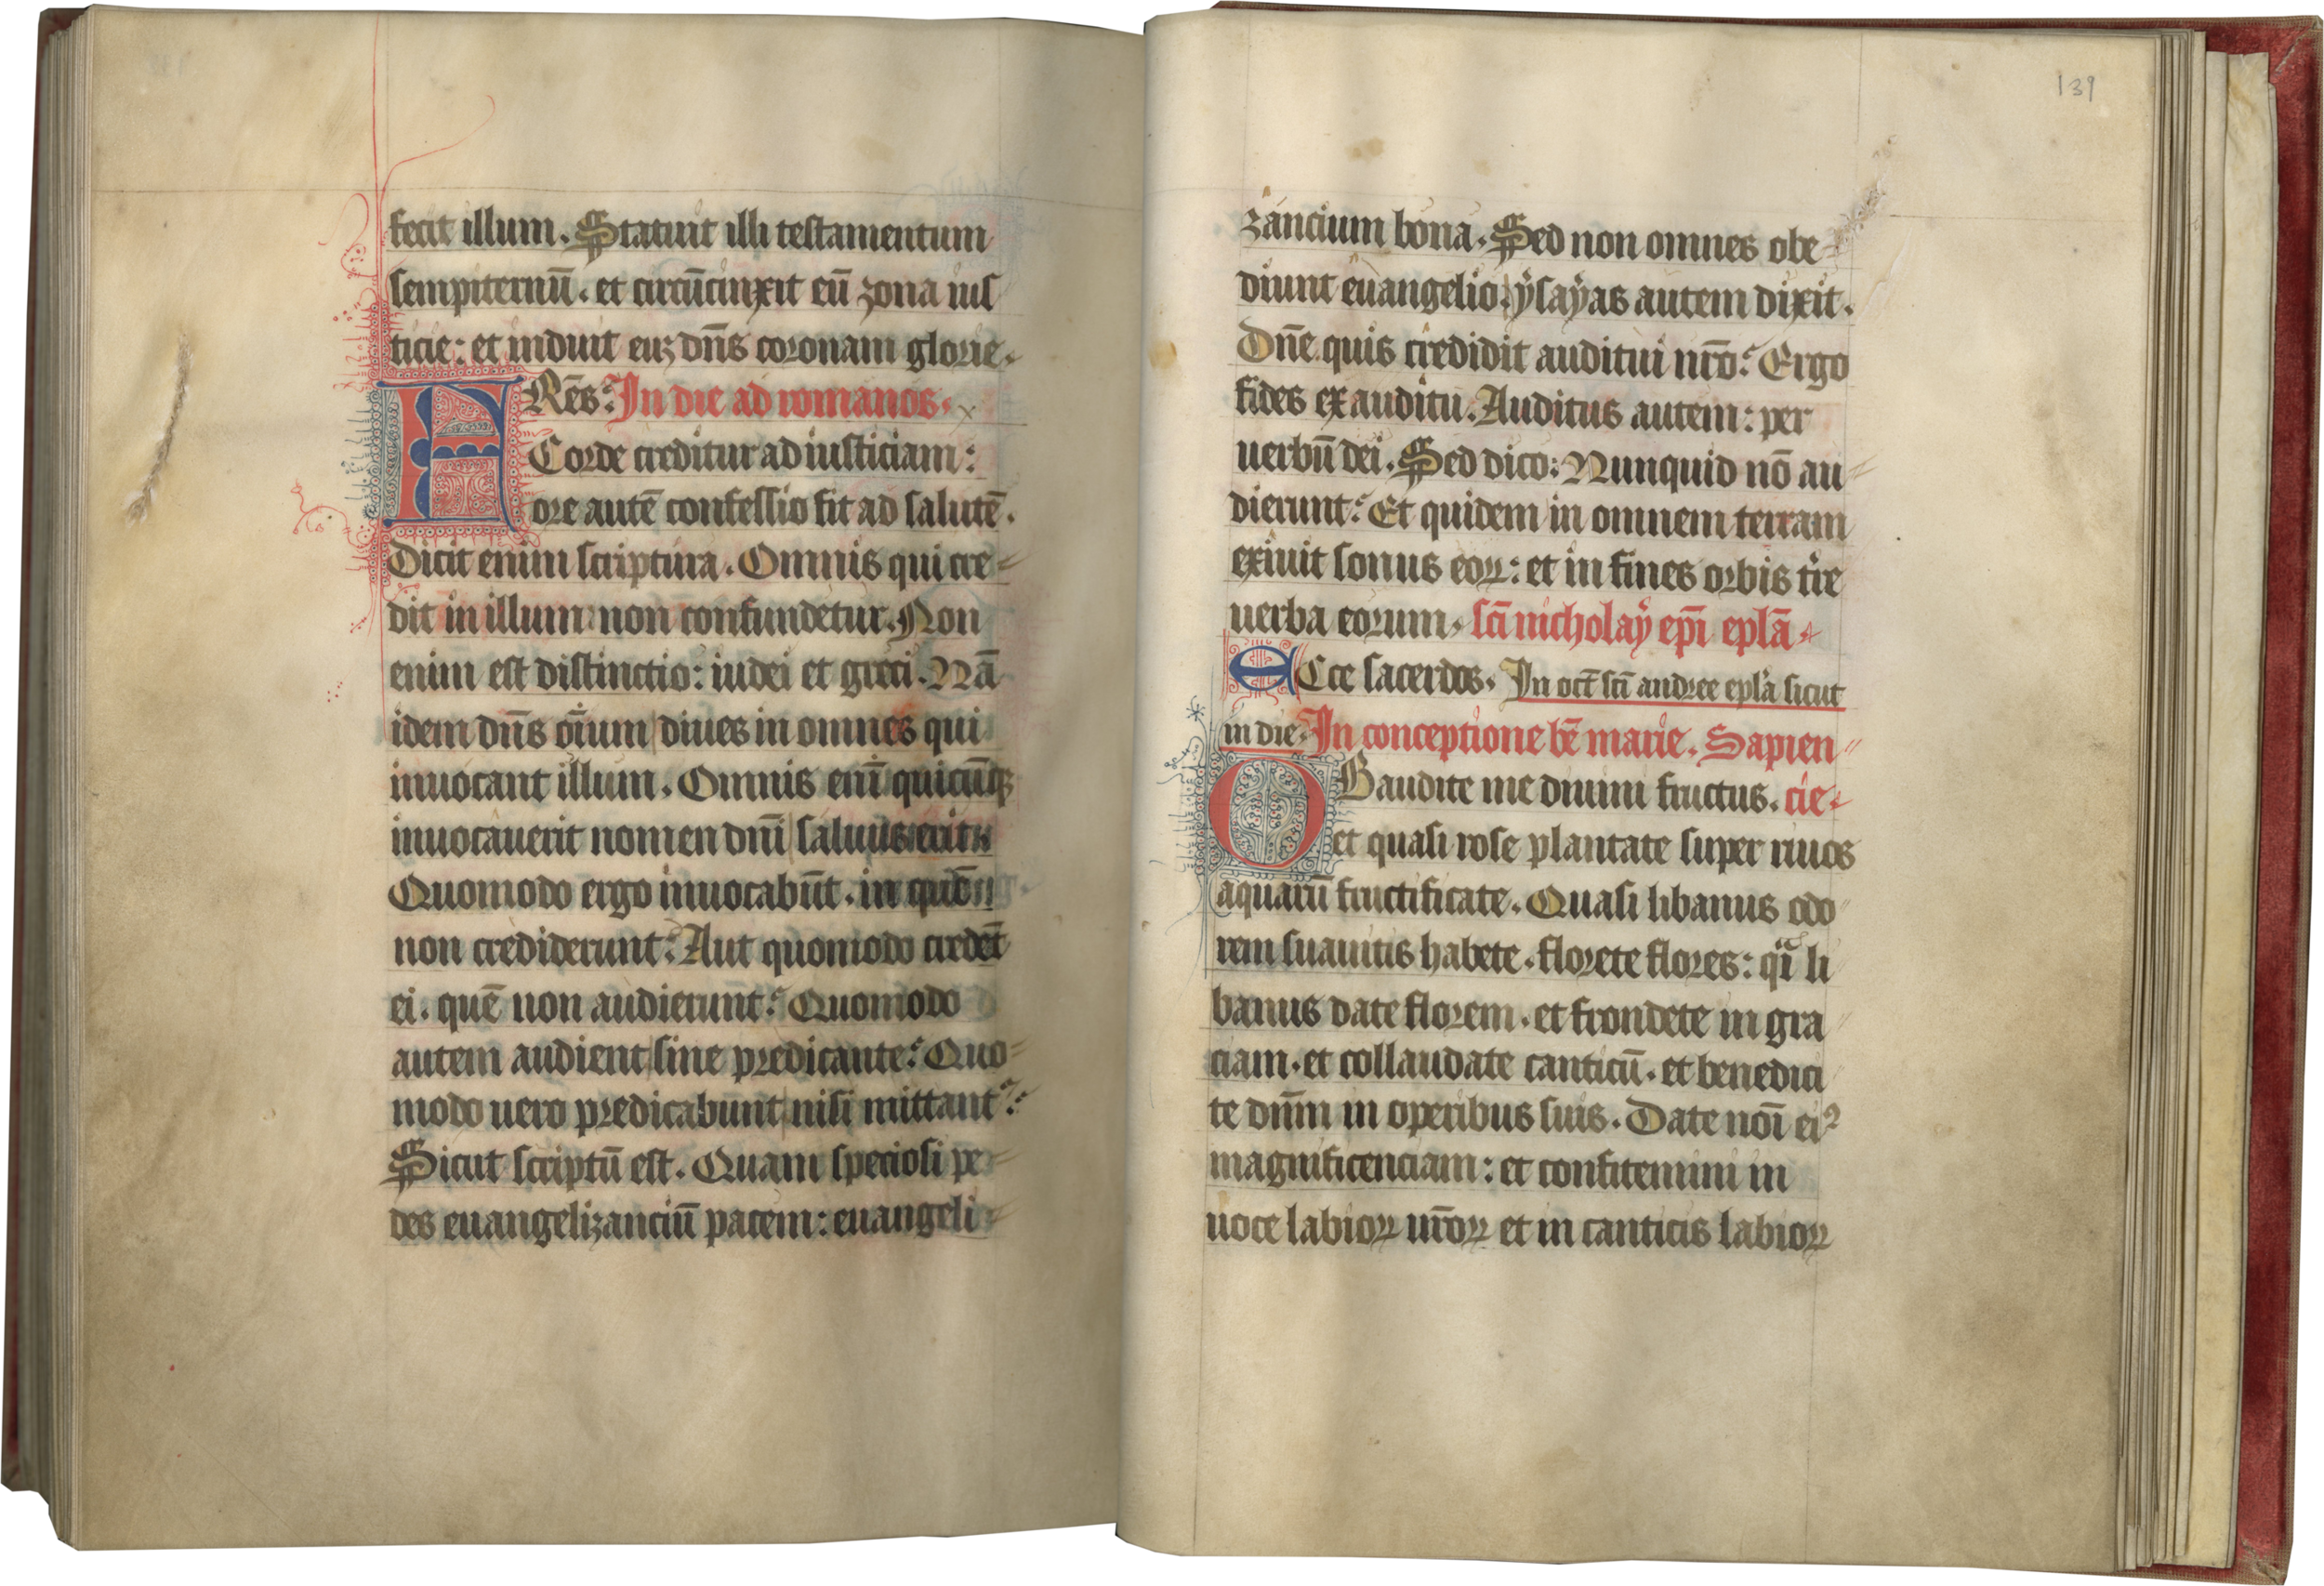 fecit illum. Statuit illi testamentum
sempiternū. et circūcinxit eū zona ius
ticie: et induit euꝫ dn̄s coronam glorie.
FRēs: In die ad romanos.
Corde creditur ad iusticiam:
ore autē confessio fit ad salutē.
Dicit enim scriptura. Omnis qui cre=
dit in illum: non confundetur. Non
enim est distinctio: iudei et greci. Nā
idem dn̄s oīum diues in omnes qui
inuocant illum. Omnis enī quicūqꝫ
inuocauerit nomen dn̄i saluus erit
Quomodo ergo inuocabūt. in quē
non crediderunt? Aut quomodo credēt
ei. quē non audierunt? Quomodo
autem audient sine predicante? Quo=
modo uero predicabunt nisi mittant᷑?
Sicut scriptū est. Quam speciosi pe=
des euangelizanciū pacem: euangeli=
139
zancium bona. Sed non omnes obe=
diunt euangelio. ysayas autem dixit.
Dn̄e quis credidit auditui nr̄o? Ergo
fides ex auditu. Auditus autem: per
uerbū dei. Sed dico: Nunquid nō au=
dierunt? Et quidem in omnem terram
exiuit sonus eoꝝ: et in fines orbis tr̄e
uerba eorum. sc̄i nicholay ep̄i epl̄a.
ECce sacerdos. In oct̄ sc̄i andree epl̄a sicut
in die. In conceptione bē marie. Sapien=
OBaudite me diuini fructus. cie.
et quasi rose plantate super riuos
aquarū fructificate. Quasi libanus odo=
rem suauitis habete. florete flores: qͣi li
banus date florem. et frondete in gra=
ciam. et collaudate canticū. et benedici
te dn̄m in operibus suis. Date noī eiꝰ
magnificenciam: et confitemini in
uoce labioꝝ ur̄oꝝ et in canticis labioꝝ